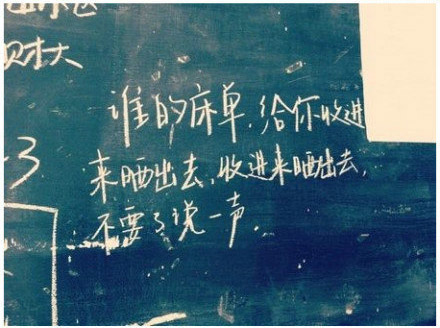 财大
谁的床单,给你收进
来晒出去,收进来晒出去,
不要了说一声.
3